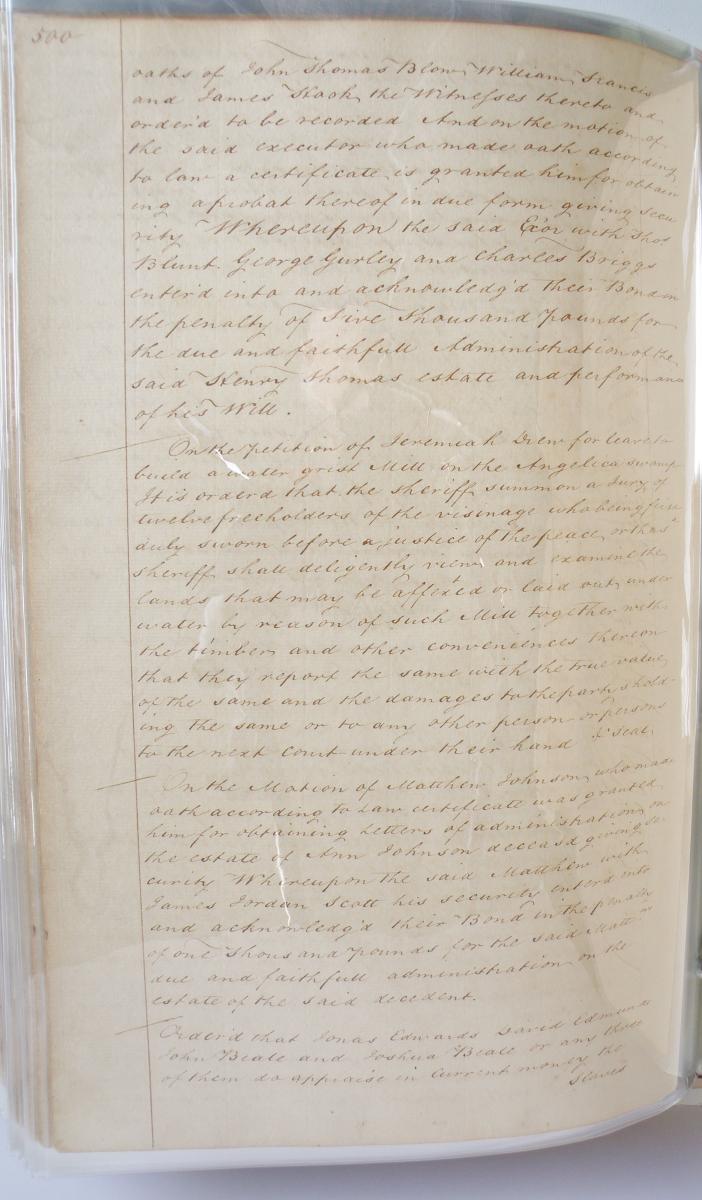 500
oaths of John Thomas Blow, William Francis
and James Stock the Witnesses thereto and
order'd to be recorded And on the motion of
the said executor who made oath according
to law a certificate is granted him for obtain
ing a probat thereof in due form giving secu
rity Whereupon the said Exor with Thos
Blunt. George Gurley and Charles Briggs
enter'd into and acknowledg'd their Bond in
the penalty of Five Thousand Pounds for
the due and faithfull Administration of the
said Henry Thomas estate and performance
of his Will.
On the Petition of Jeremiah Drew for leave to
build a water grist Mill on the Angelica swamp
It is orderd that the sheriff summon a Jury of
twelve freeholders of the visinage who being first
duly sworn before a justice of the peace or the sd
sheriff shall deligently view and examine the
lands that may be affexted or laid out under
water by reason of such Mill together with
the timber and other conveniences thereon
that they report the same with the true value
of the same and the damages to the party hold
ing the same or to any other person or persons
to the next Court under their hand & seal.
On the Motion of Matthew Johnson, who made
oath according to Law certificate was granted
him for obtaining Letters of administration on
the estate of Ann Johnson deceasd giving se
curity Whereupon the said Matthew with
James Jordan Scott his security enterd into
and acknowledg'd their Bond in the penalty
of one Thousand Pounds for the said Matt.w
due and faithfull administration on the
estate of the said decedent.
Order'd that Jonas Edwards David Edmunds
John Beale and Joshua Beale or any three
of them do appraise in current money the
Slaves